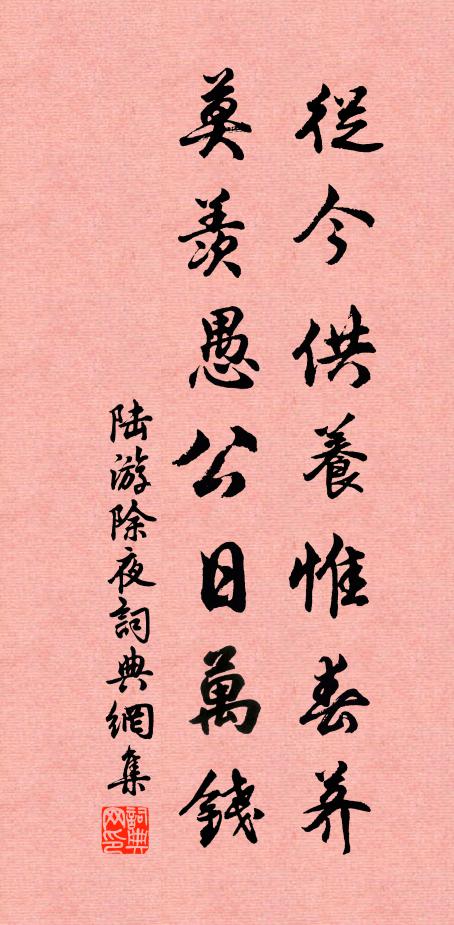 從今供養惟春荠
莫羨愚公日萬錢
陆游除夜詞典網集
詞典网印